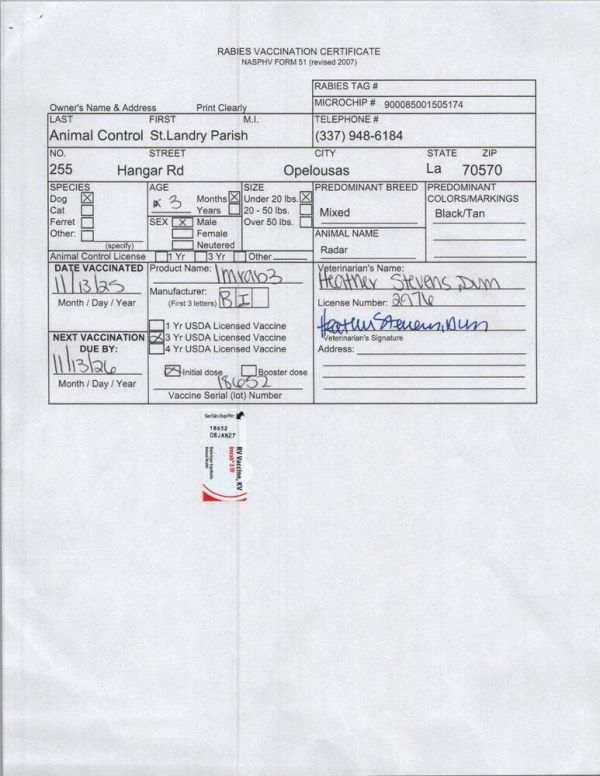 RABIES VACCINATION CERTIFICATE
NASPHV FORM 51 (revised 2007)
RABIES TAG #
Owner's Name & Address Print Clearly MICROCHIP # 900085001505174
LAST FIRST M.I. TELEPHONE #
Animal Control St.Landry Parish (337) 948-6184
NO. STREET CITY STATE ZIP
255 Hangar Rd Opelousas La 70570
SPECIES AGE SIZE PREDOMINANT BREED PREDOMINANT
COLORS/MARKINGS
Dog 3 Months Under 20 lbs.
Cat Years 20 - 50 lbs. Mixed Black/Tan
Ferret SEX X Male Over 50 lbs.
Other: Female ANIMAL NAME
(specify) Neutered Radar
Animal Control License 1 Yr 3 Yr Other
DATE VACCINATED Product Name: Imrab3 Veterinarian's Name:
11/13/25 Heather Stevens, DVM
Month / Day / Year Manufacturer: BI License Number: 2976
(First 3 letters)
Heather Stevens, DVM
1 Yr USDA Licensed Vaccine
NEXT VACCINATION 3 Yr USDA Licensed Vaccine Veterinarian's Signature
DUE BY: 4 Yr USDA Licensed Vaccine Address:
11/13/26 Initial dose Booster dose
18652
Month / Day / Year Vaccine Serial (lot) Number
18652
08JAN27
RV Vaccine, KV